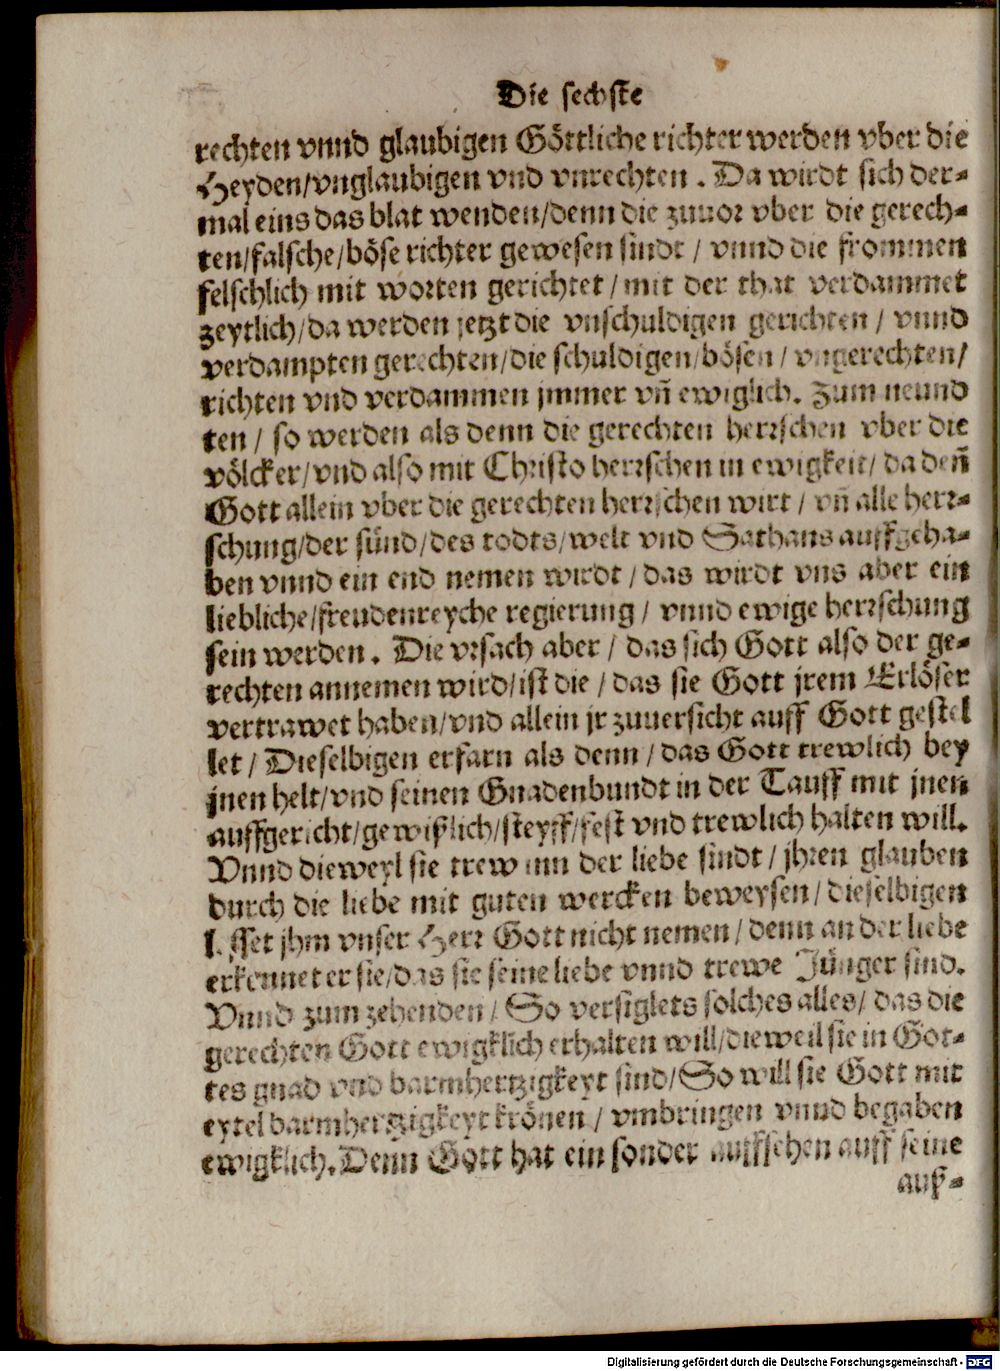 Die sechste
rechten vnnd glaubigen Göttliche richter werden vber die
Heyden/vnglaubigen vnd vnrechten . Da wirdt sich der-
mal eins das blat wenden/denn die zuuor vber die gerech-
ten/falsche/böse richter gewesen sindt / vnnd die frommen
felschlich mit worten gerichtet / mit der that verdammet
zeytlich/da werden jetzt die vnschuldigen gerichten / vnnd
verdampten gerechten/die schuldigen/bösen / vngerechten/
richten vnd verdammen jmmer vn̄ ewiglich. Zum neund
ten / so werden als denn die gerechten herrschen vber die
völcker/vnd also mit Christo herrschen in ewigkeit/ da den̄
Gott allein vber die gerechten herrschen wirt / vn̄ alle herr-
schung/der sünd/des todts/welt vnd Sathans auffgeha-
ben vnnd ein end nemen wirdt / das wirdt vns aber ein
liebliche/freudenreyche regierung / vnnd ewige herrschung
sein werden . Die vrsach aber / das sich Gott also der ge-
rechten annemen wird/ist die / das sie Gott jrem Erlöser
vertrawet haben/vnd allein jr zuuersicht auff Gott gestel
let / Dieselbigen erfarn als denn / das Gott trewlich bey
jnen helt/vnd seinen Gnadenbundt in der Tauff mit jnen
auffgericht/gewißlich/steyff/fest vnd trewlich halten will.
Vnnd dieweyl sie trew inn der liebe sindt / jhren glauben
durch die liebe mit guten wercken beweysen / dieselbigen
lesset jhm vnser Herr Gott nicht nemen / denn an der liebe
erkennet er sie/das sie seine liebe vnnd trewe Jünger sind.
Vnnd zum zehenden / So versiglets solches alles/ das die
gerechten Gott ewigklich erhalten will/dieweil sie in Got-
tes gnad vnd barmhertzigkeyt sind/So will sie Gott mit
eytel barmhertzigkeyt krönen / vmbringen vnnd begaben
ewigklich. Denn Gott hat ein sonder auffsehen auff seine
auß-
Digitalisierung gefördert durch die Deutsche Forschungsgemeinschaft - DFG